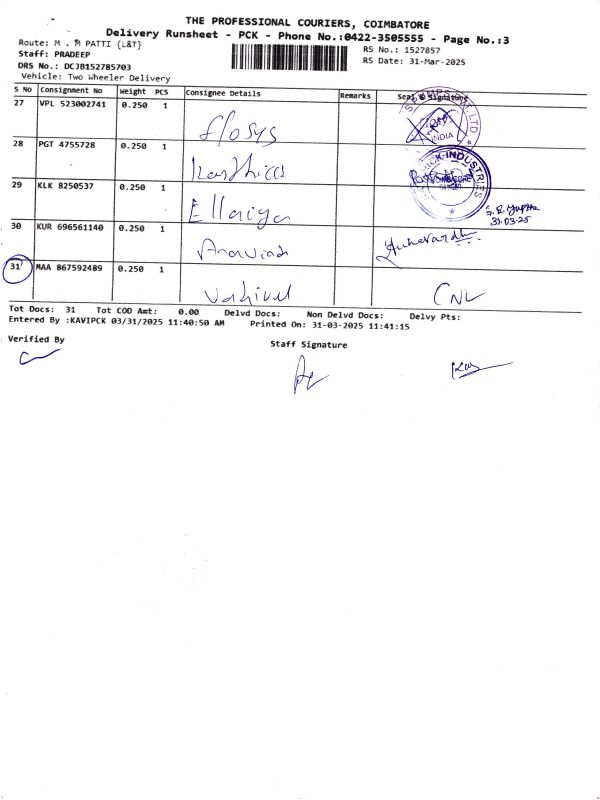 THE PROFESSIONAL COURIERS, COIMBATORE
Delivery Runsheet - PCK - Phone No.:0422-3505555 - Page No.:3
Route: M . M PATTI {L&T}
RS No.: 1527857
Staff: PRADEEP
RS Date: 31-Mar-2025
DRS No.: DCJB152785703
Vehicle: Two Wheeler Delivery
S No Consignment No Weight PCS Consignee Details Remarks Seal & Signature
27 VPL 523002741 0.250 1 flosys
INDIA
28 PGT 4755728 0.250 1 Karthick
INDUSTRIES
29 KLK 8250537 0.250 1 Ellaiya
31.03.25
30 KUR 696561140 0.250 1 Aravind
31 MAA 867592489 0.250 1
Tot Docs: 31 Tot COD Amt: 0.00 Delvd Docs: Non Delvd Docs: Delvy Pts:
Entered By :KAVIPCK 03/31/2025 11:40:50 AM Printed On: 31-03-2025 11:41:15
Verified By
Staff Signature